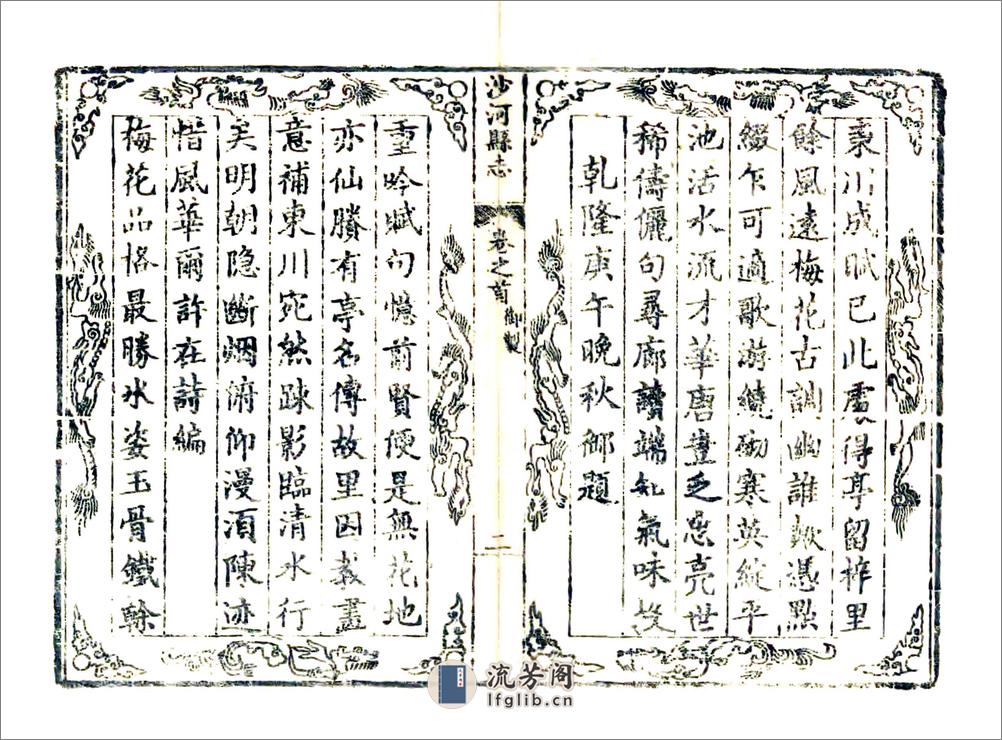 東川成賦已此處得亭留梓里
餘風遠梅花古調幽誰歟憑點
綴乍可適歌游繞砌寒英綻平
池活水流才華唐豈乏忠亮世
稀儔儷句尋廊讀端知氣味投
乾隆庚午晚秋御題
沙河縣志
卷之首
御製
二
重吟賦句憶前賢便是無花地
亦仙賸有亭名傳故里因教畫
意補東川宛然踈影臨清水行
矣明朝隐斷烟俯仰漫湏陳迹
惜風華爾許在詩編
梅花品格最勝氷姿玉骨鐵榦
流芳阁
lfglib.cn